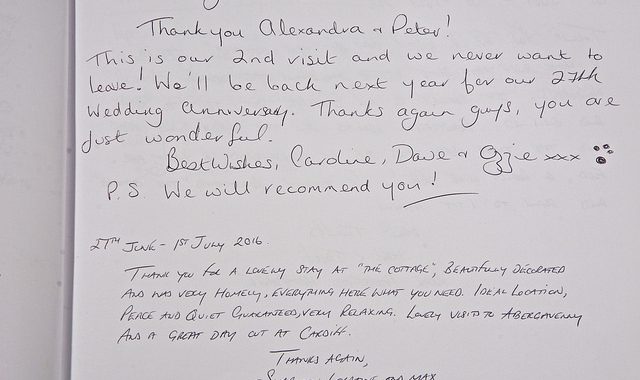 Thank you Alexandra & Peter!
This is our 2nd visit and we never want to
leave! We'll be back next year for our 27th
Wedding anniversary. Thanks again guys, you are
just wonderful.
Best Wishes, Caroline, Dave & Ozzie xxx
P.S. We will recommend you!
27TH JUNE - 1ST JULY 2016.
THANK YOU FOR A LOVELY STAY AT "THE COTTAGE", BEAUTIFULLY DECORATED
AND WAS VERY HOMELY, EVERYTHING HERE WHAT YOU NEED. IDEAL LOCATION,
PEACE AND QUIET GUARANTEED, VERY RELAXING. LOVELY VISIT TO ABERGAVENNY
AND A GREAT DAY OUT AT CARDIFF.
THANKS AGAIN,
AND MAX